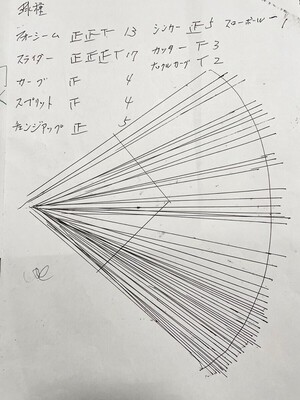 球種
フォーシーム 正正下 13 シンカー 正 5 スローボール 一 1
スライダー 正正正丅 17 カッター 下 3
カーブ 正 4 ナックルカーブ 丅 2
スプリット 正 4
チェンジアップ 正 5